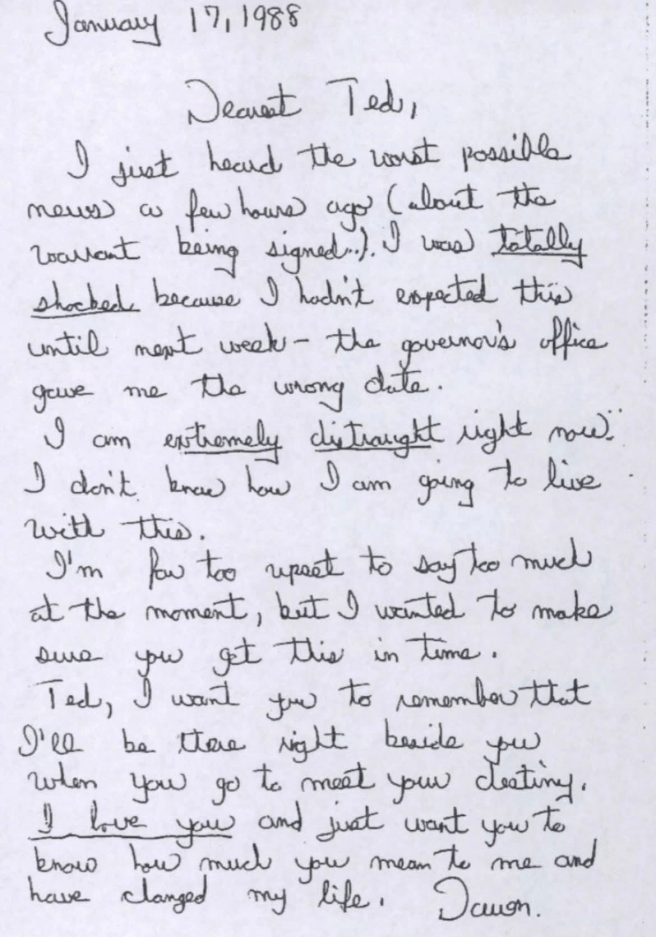 January 17, 1988
Dearest Ted,
I just heard the worst possible
news a few hours ago (about the
warrant being signed..). I was totally
shocked because I hadn't expected this
until next week - the governor's office
gave me the wrong date.
I am extremely distraught right now..
I don't know how I am going to live
with this.
I'm far too upset to say too much
at the moment, but I wanted to make
sure you get this in time.
Ted, I want you to remember that
I'll be there right beside you
when you go to meet your destiny.
I love you and just want you to
know how much you mean to me and
have changed my life.